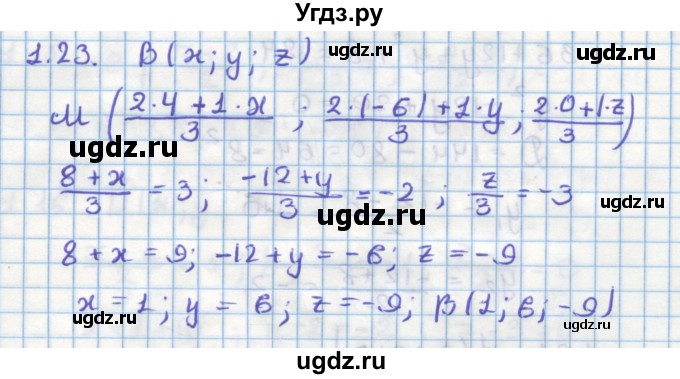 Угдз.ру
1.23. B(x; y; z) ugdz.ru ugdz.ru
M ((2·4+1·x)/3 ; (2·(-6)+1·y)/3 ; (2·0+1·z)/3)
ugdz.ru ugdz.ru
(8+x)/3 = 3; (-12+y)/3 = -2; z/3 = -3
ugdz.ru
8+x=9; -12+y=-6; z=-9
x=1; y=6; z=-9; B(1; 6; -9)
ugdz.ru ugdz.ru
ugdz.ru